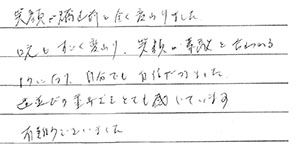 笑顔が矯正前と全く変わりました。
口元もすごく変わり、笑顔が素敵と言われる
ようになり、自分でも自信がつきました。
歯並びの重要さをとても感じています
有難うございました